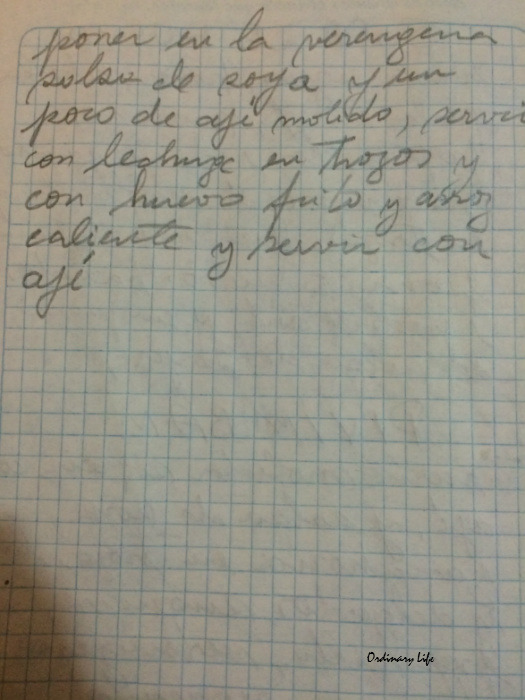 poner en la verengena
salsa de soya y un
poco de ají molido, servir
con lechuga en trozos y
con huevo frito y arroz
caliente y servir con
ají
Ordinary Life